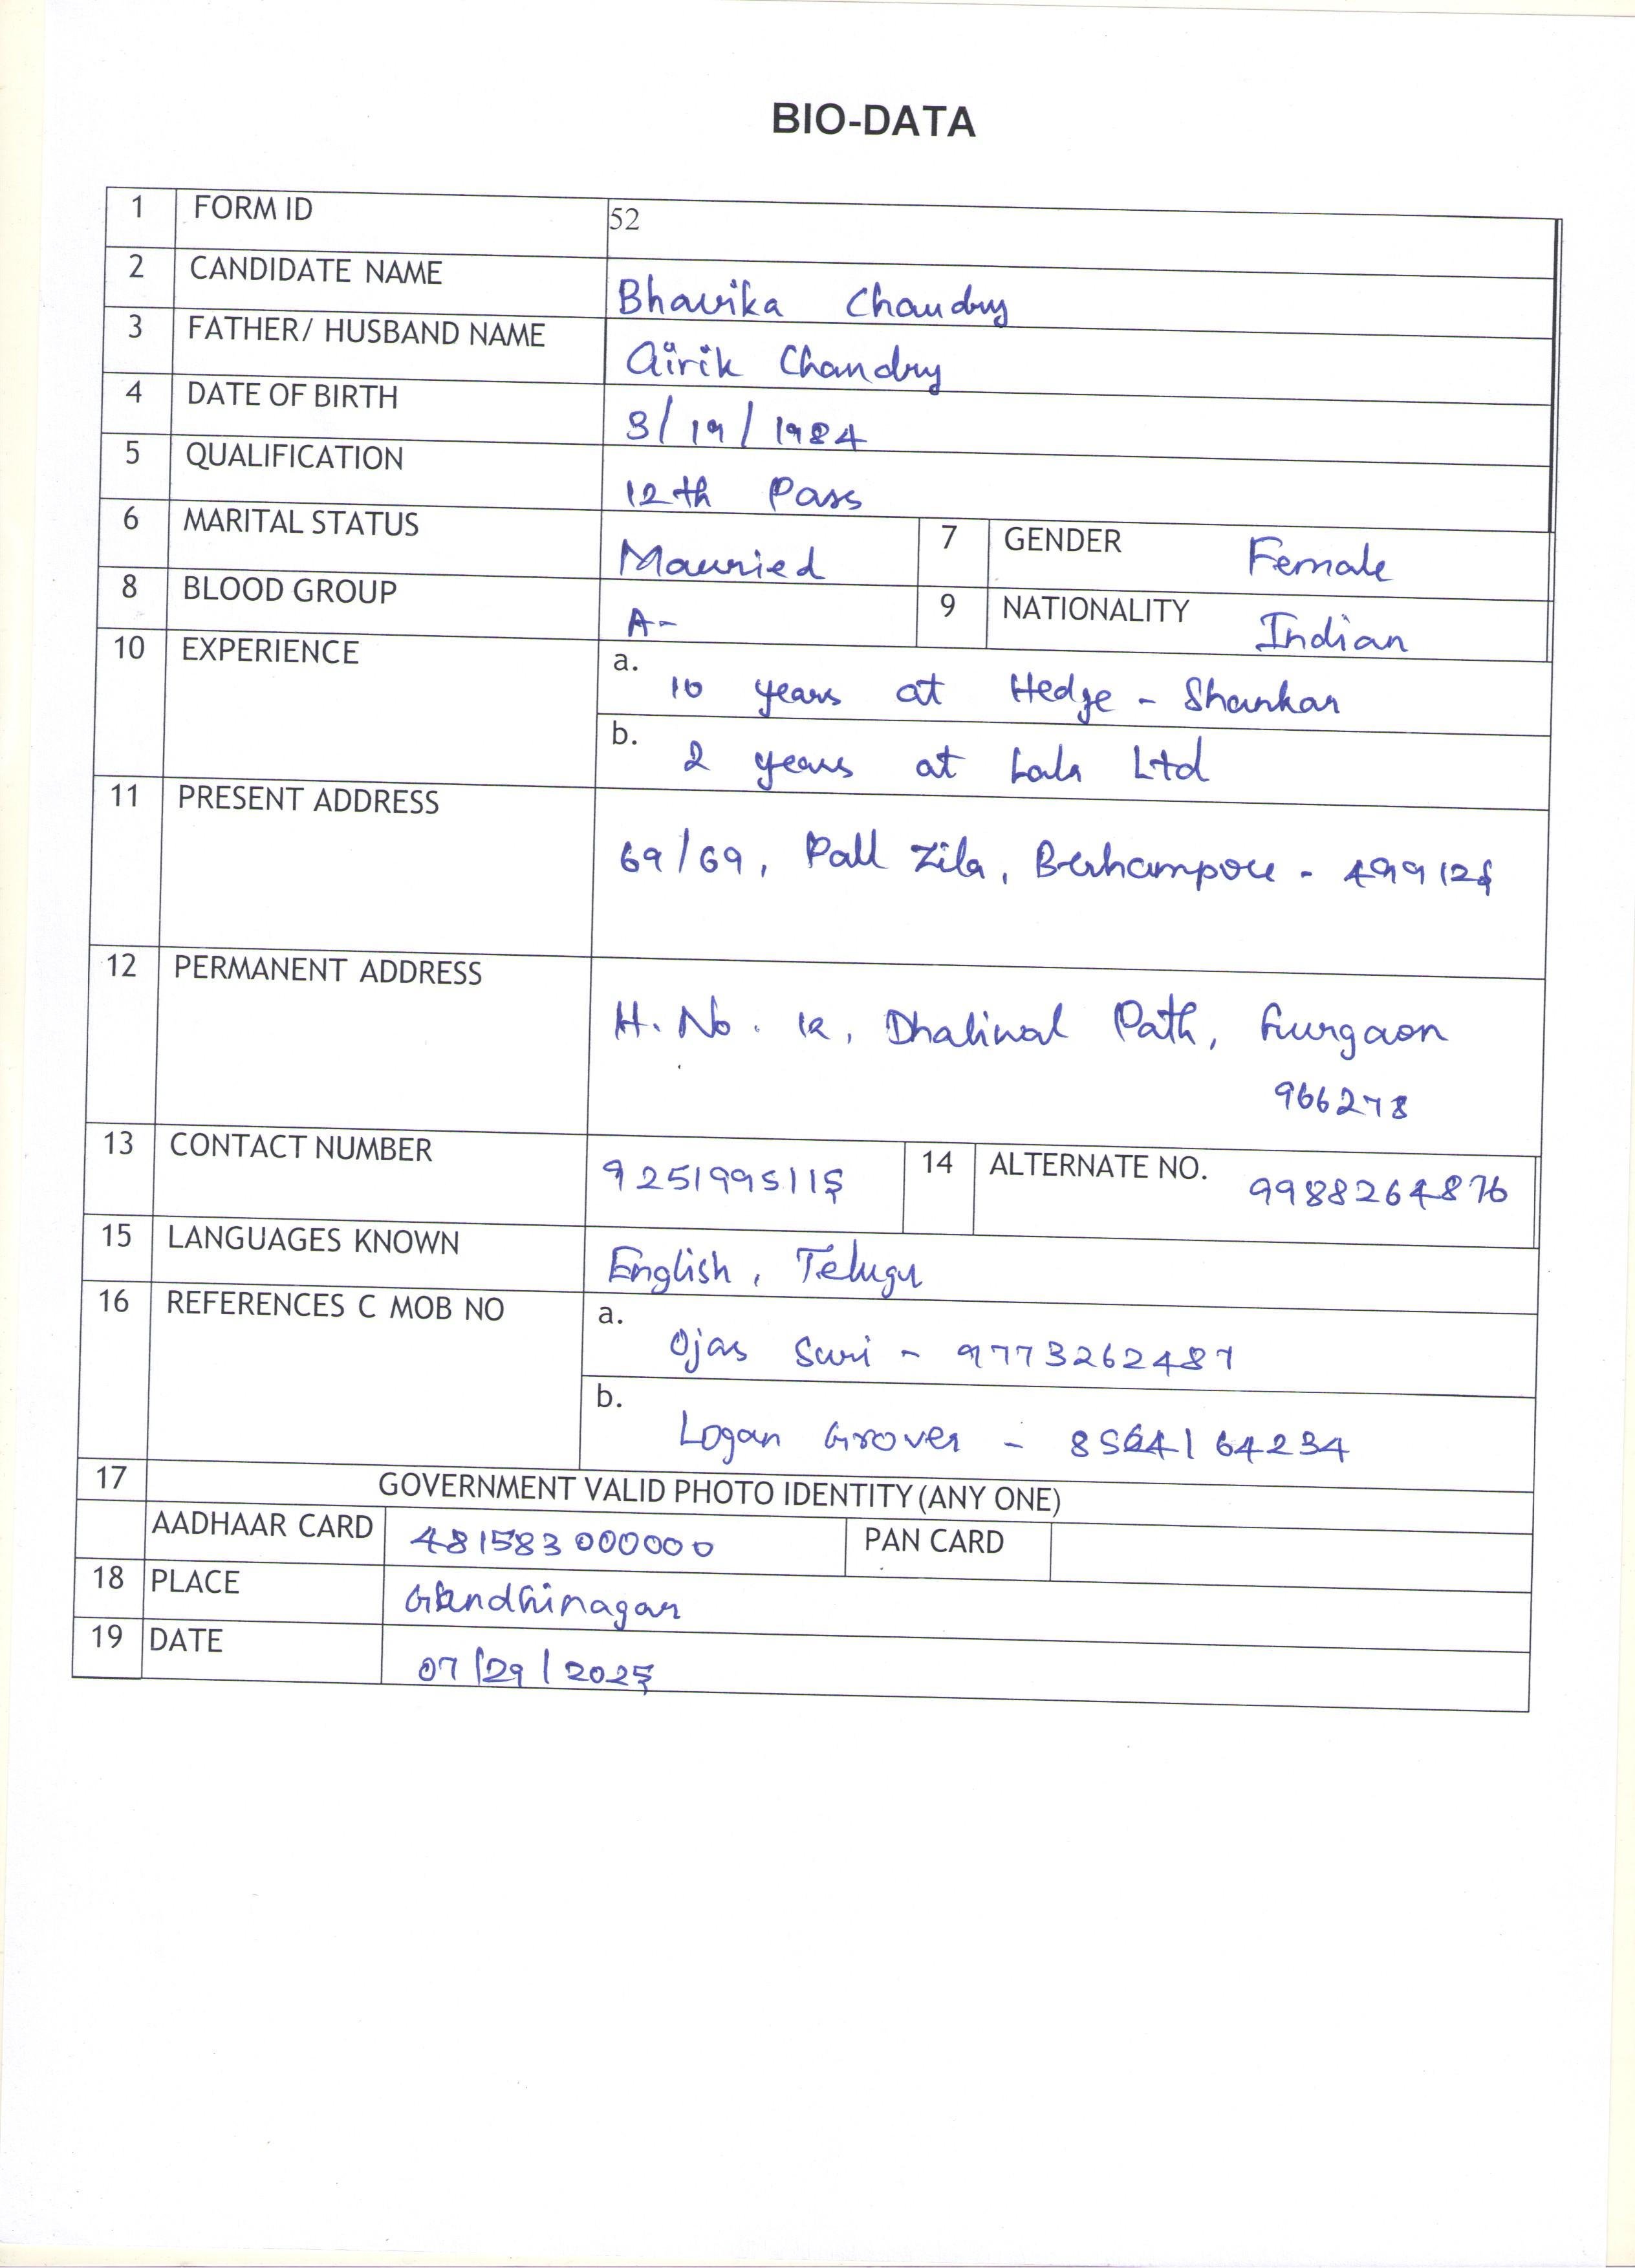 BIO-DATA
1 FORM ID 52
2 CANDIDATE NAME Bhavika Chaudry
3 FATHER/ HUSBAND NAME Airik Chandry
4 DATE OF BIRTH 3/19/1984
5 QUALIFICATION 12th Pass
6 MARITAL STATUS Married 7 GENDER Female
8 BLOOD GROUP A- 9 NATIONALITY Indian
10 EXPERIENCE a. 10 years at Hedge - Shankar
b. 2 years at Lala Ltd
11 PRESENT ADDRESS 69/69, Pall Zila, Berhampore - 499125
12 PERMANENT ADDRESS H. No. 12, Dhaliwal Path, Gurgaon
966278
13 CONTACT NUMBER 9251995115 14 ALTERNATE NO. 9988264876
15 LANGUAGES KNOWN English, Telugu
16 REFERENCES C MOB NO a. Ojas Suri - 9773262487
b. Logan Grover - 8564164234
17 GOVERNMENT VALID PHOTO IDENTITY (ANY ONE)
AADHAAR CARD 481583000000 PAN CARD
18 PLACE Gandhinagar
19 DATE 07/29/2025